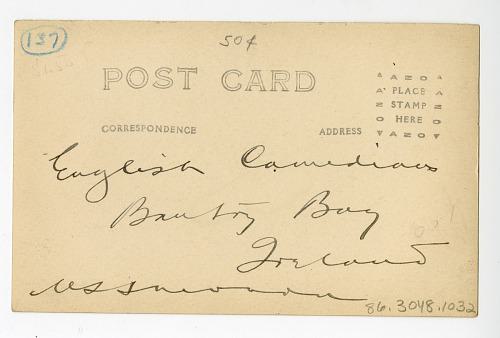 137
50¢
POST CARD
AZO
PLACE
STAMP
HERE
AZO
CORRESPONDENCE
ADDRESS
English Comedians
Bantry Bay
Ireland
86.3048.1032